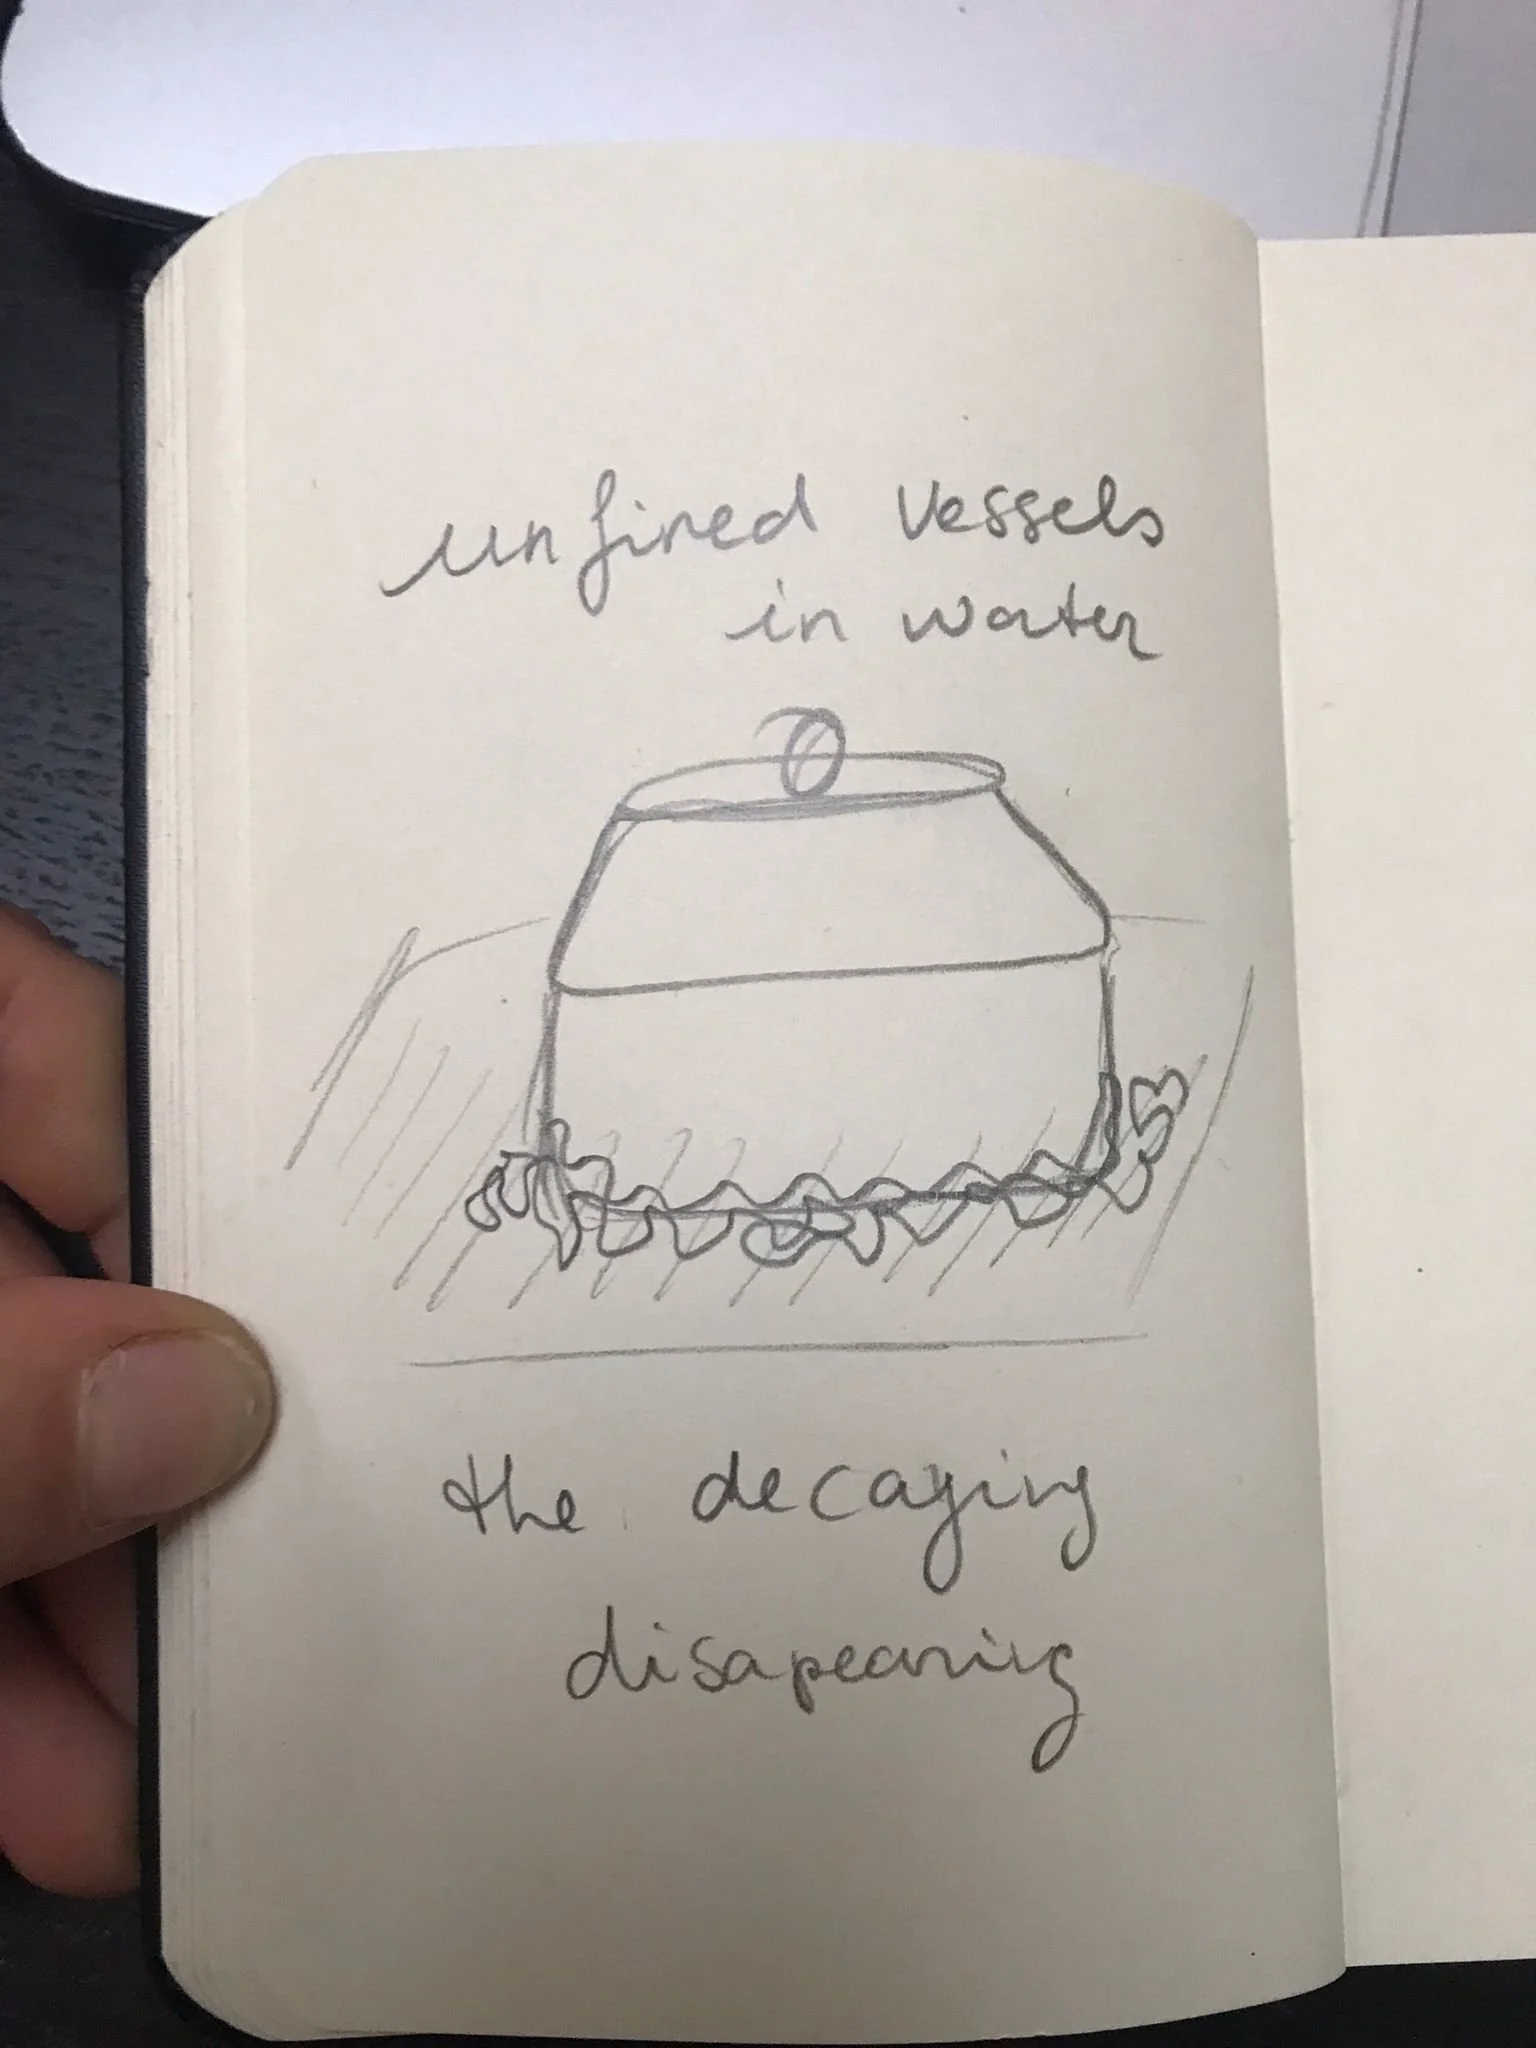 unfired vessels
in water
the decaying
disapearing